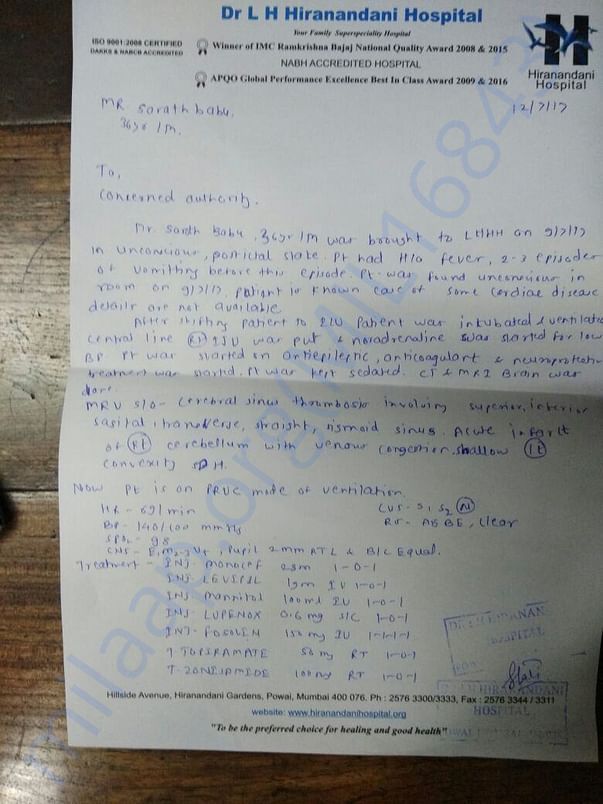 Dr L H Hiranandani Hospital
Your Family Superspeciality Hospital
ISO 9001:2008 CERTIFIED
DAKKS & NABCB ACCREDITED
Winner of IMC Ramkrishna Bajaj National Quality Award 2008 & 2015
NABH ACCREDITED HOSPITAL
APQO Global Performance Excellence Best In Class Award 2009 & 2016
Hiranandani
Hospital
MR Sarath babu
36yr /M.
12/7/17
To,
Concerned authority.
Mr. Sarath Babu, 36yr /M was brought to LHHH on 9/7/17
in unconcious, postictal state. Pt had H/o fever, 2-3 episodes
of vomitting before this episode. Pt was found unconcious in
room on 9/7/17, patient is known case of some cardiac disease
details are not available
After shifting patient to ICU patient was intubated & ventilated
central line Rt IJV was put & noradrenaline was started for low
BP. Pt was started on antiepileptic, anticoagulant & neuroprotective
treatment was started. Pt was kept sedated. CT & MRI Brain was
done.
MRV s/o - Cerebral sinus thrombosis involving superior, inferior
sagital, transverse, straight, sigmoid sinus. Acute infarct
of Rt cerebellum with venous congestion. shallow Lt
convexity SDH.
Now Pt is on PRVC mode of ventilation.
HR - 69/min
CVS - S1, S2 N
BP - 140/100 mmHg
RS - AEBE, clear
SPO2 - 98
CNS - Pupil 2mm RTL & B/L Equal.
Treatment - INJ- MONOCEF 2gm 1-0-1
INJ- LEVIPIL 1gm IV 1-0-1
INJ- Mannitol 100ml IV 1-0-1
INJ- LUPENOX 0.6 mg S/C 1-0-1
INJ- FOSOLIN 150 mg IV 1-1-1
T- TOPIRAMATE 50 mg RT 1-0-1
T- ZONISAMIDE 100 mg RT 1-0-1
HOSPITAL
Hillside Avenue, Hiranandani Gardens, Powai, Mumbai 400 076. Ph : 2576 3300/3333, Fax : 2576 3344 / 3311
website: www.hiranandanihospital.org
"To be the preferred choice for healing and good health"
HOSPITAL